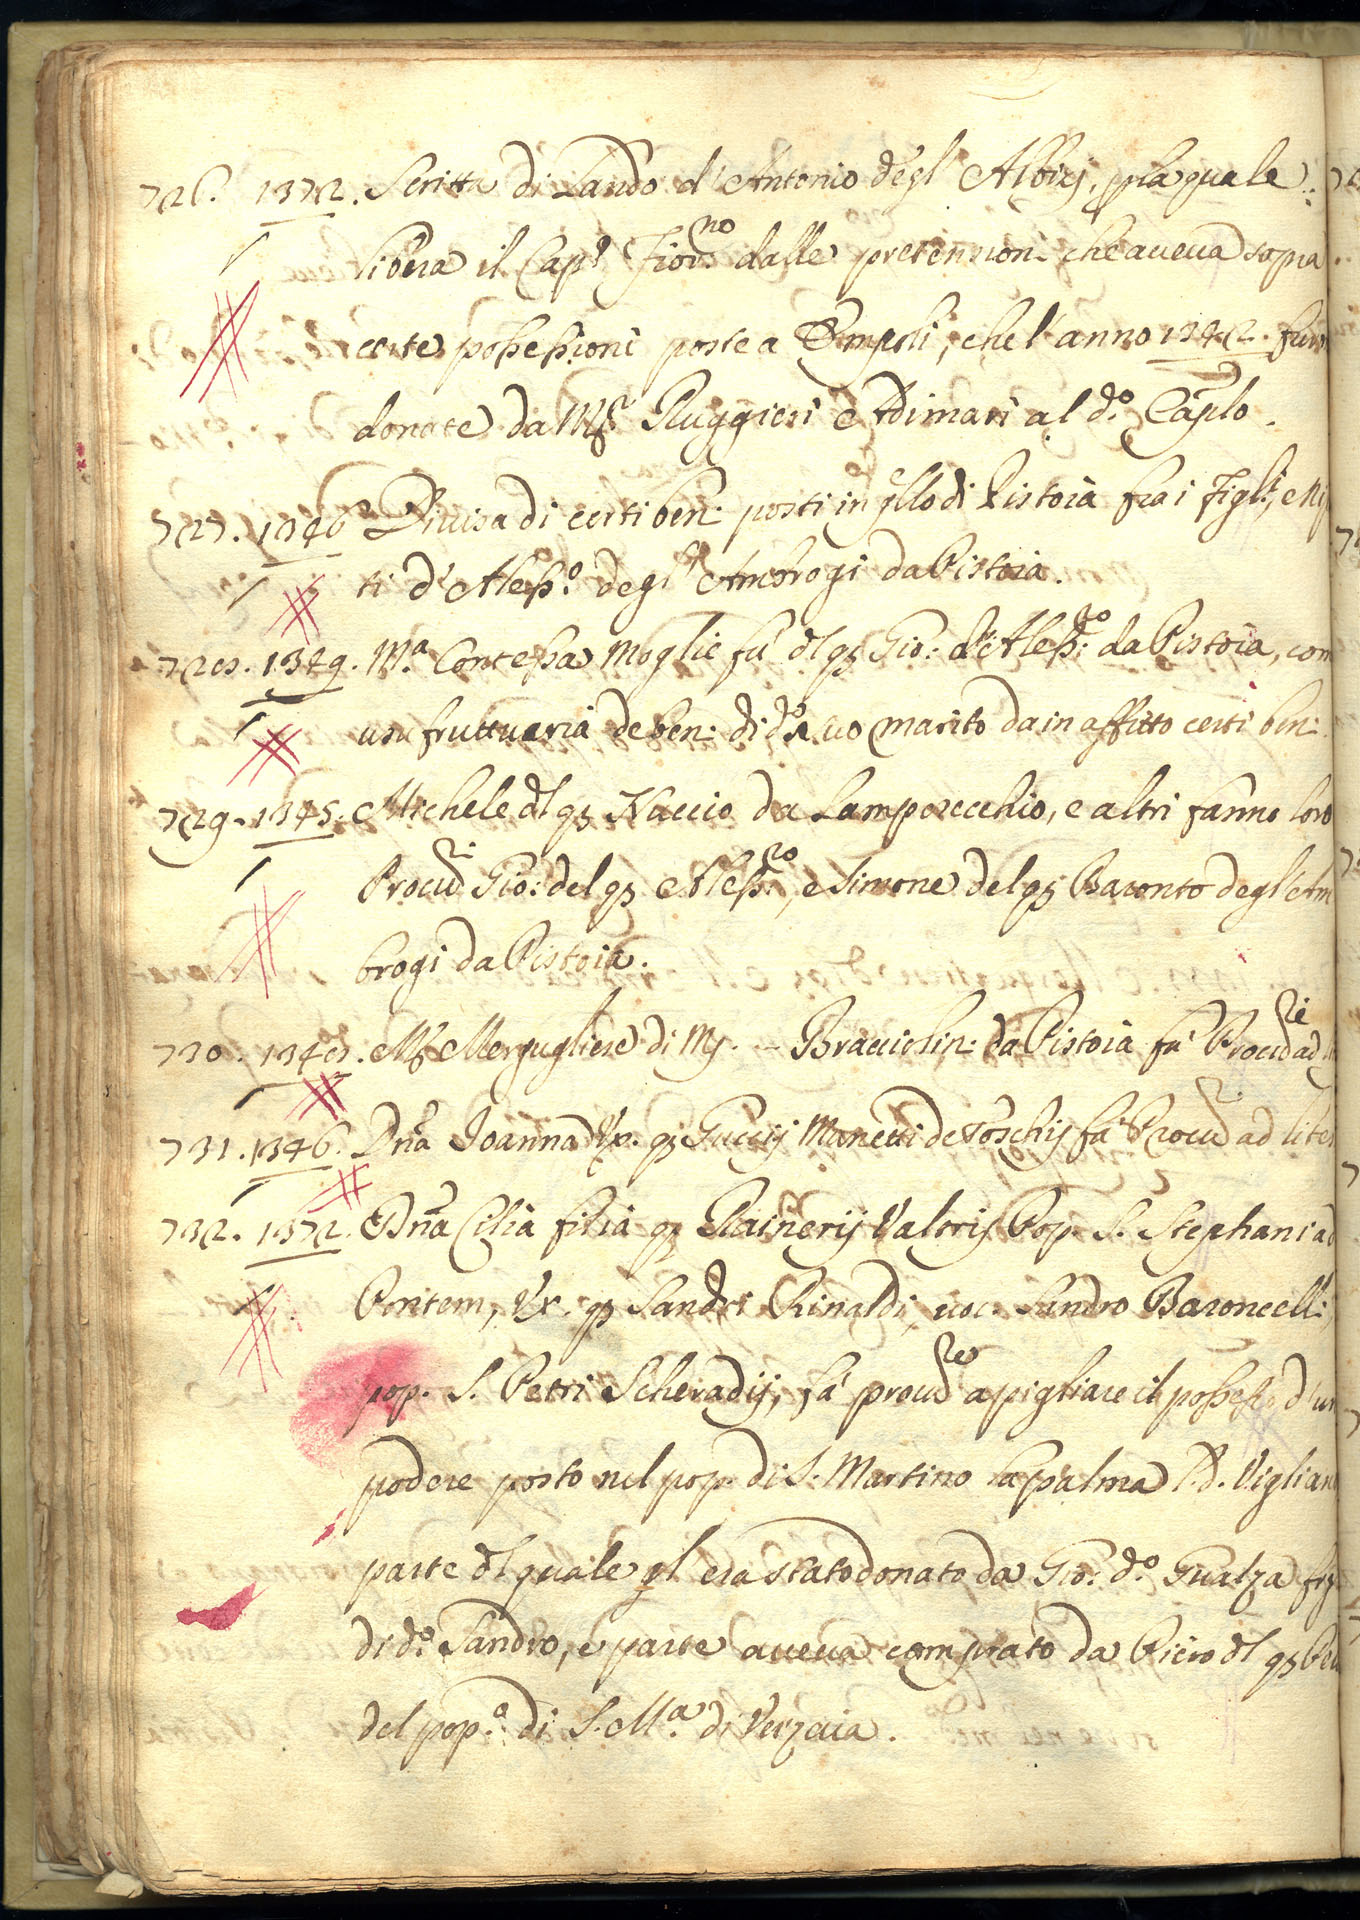 726. 1372. Scritta di Lando d'Antonio degl' Albizj, p la quale
libera il Cap.º Fior.no dalle pretensioni che aueua sopra
certe possessioni poste a Empoli, che l'anno 1342. furo
donate da Mſ.r Ruggieri Adimari al d.º Caplo.
727. 1346 Diuisa di certi ben: posti in qllo di Pistoia fra i Figli, e Nip
ti d'Aless.º degl' Ambrogi da Pistoia.
728. 1349. M.a Contessa Moglie fu dl q3 Gio: d'Aless.ro da Pistoia, com
usufruttuaria de ben: di d.º suo marito da in affitto certi ben:
729. 1345. Michele dl q3 Naccio da Lamporecchio, e altri fanno loro
Procu.ri Gio: del q3 Aless.ro, e Simone del q3 Baronto degl' Am
brogi da Pistoia.
730. 1348. Mſ Merugliese di Mſ. – Bracciolin: da Pistoia fa' Procu.re ad
731. 1346. Dna Joanna Vx. q3 Guccij Manetti de Toschis fa' Procu.r ad lites
732. 1372. Dna Cilia filia q3 Rainerij Valoris Pop. S. Stephani ad
Pontem, Vx. q3 Sandri Rinaldi, uoc. Sandro Baroncelli,
pop. S. Petri Scheradij, fa' procu.re a pigliare il possess. d'un
podere posto nel pop. di S. Martino la palma P. d. Vigliano
parte dl quale gl' era stato donato da Gio: d.º Gualza
di d.º Sandro, e parte aueua comprato da Piero dl q3
del pop.º di S. M.a di Verzaia.